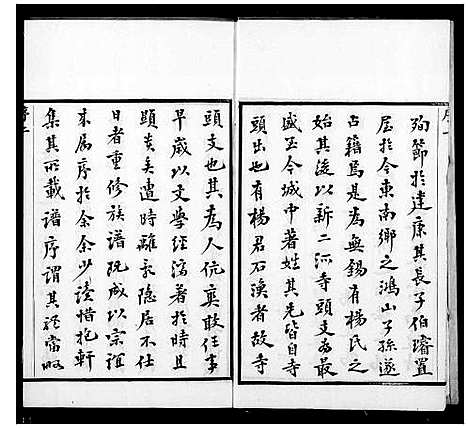 殉節於建康其長子伯璿置
居於今東南鄉之鴻山子孫遂
占籍焉是為無錫有楊氏之
始其後以新二河寺頭支為最
盛至今城中著姓其先皆自寺
頭出也有楊君石漁者故寺
頭支也其為人伉爽敢任事
早歲以文學經濟著於時且
顯矣遭時離亂隱居不仕
日者重修族譜既成以宗誼
來屬序於余余少讀惜抱軒
集其所載譜序謂其禮當